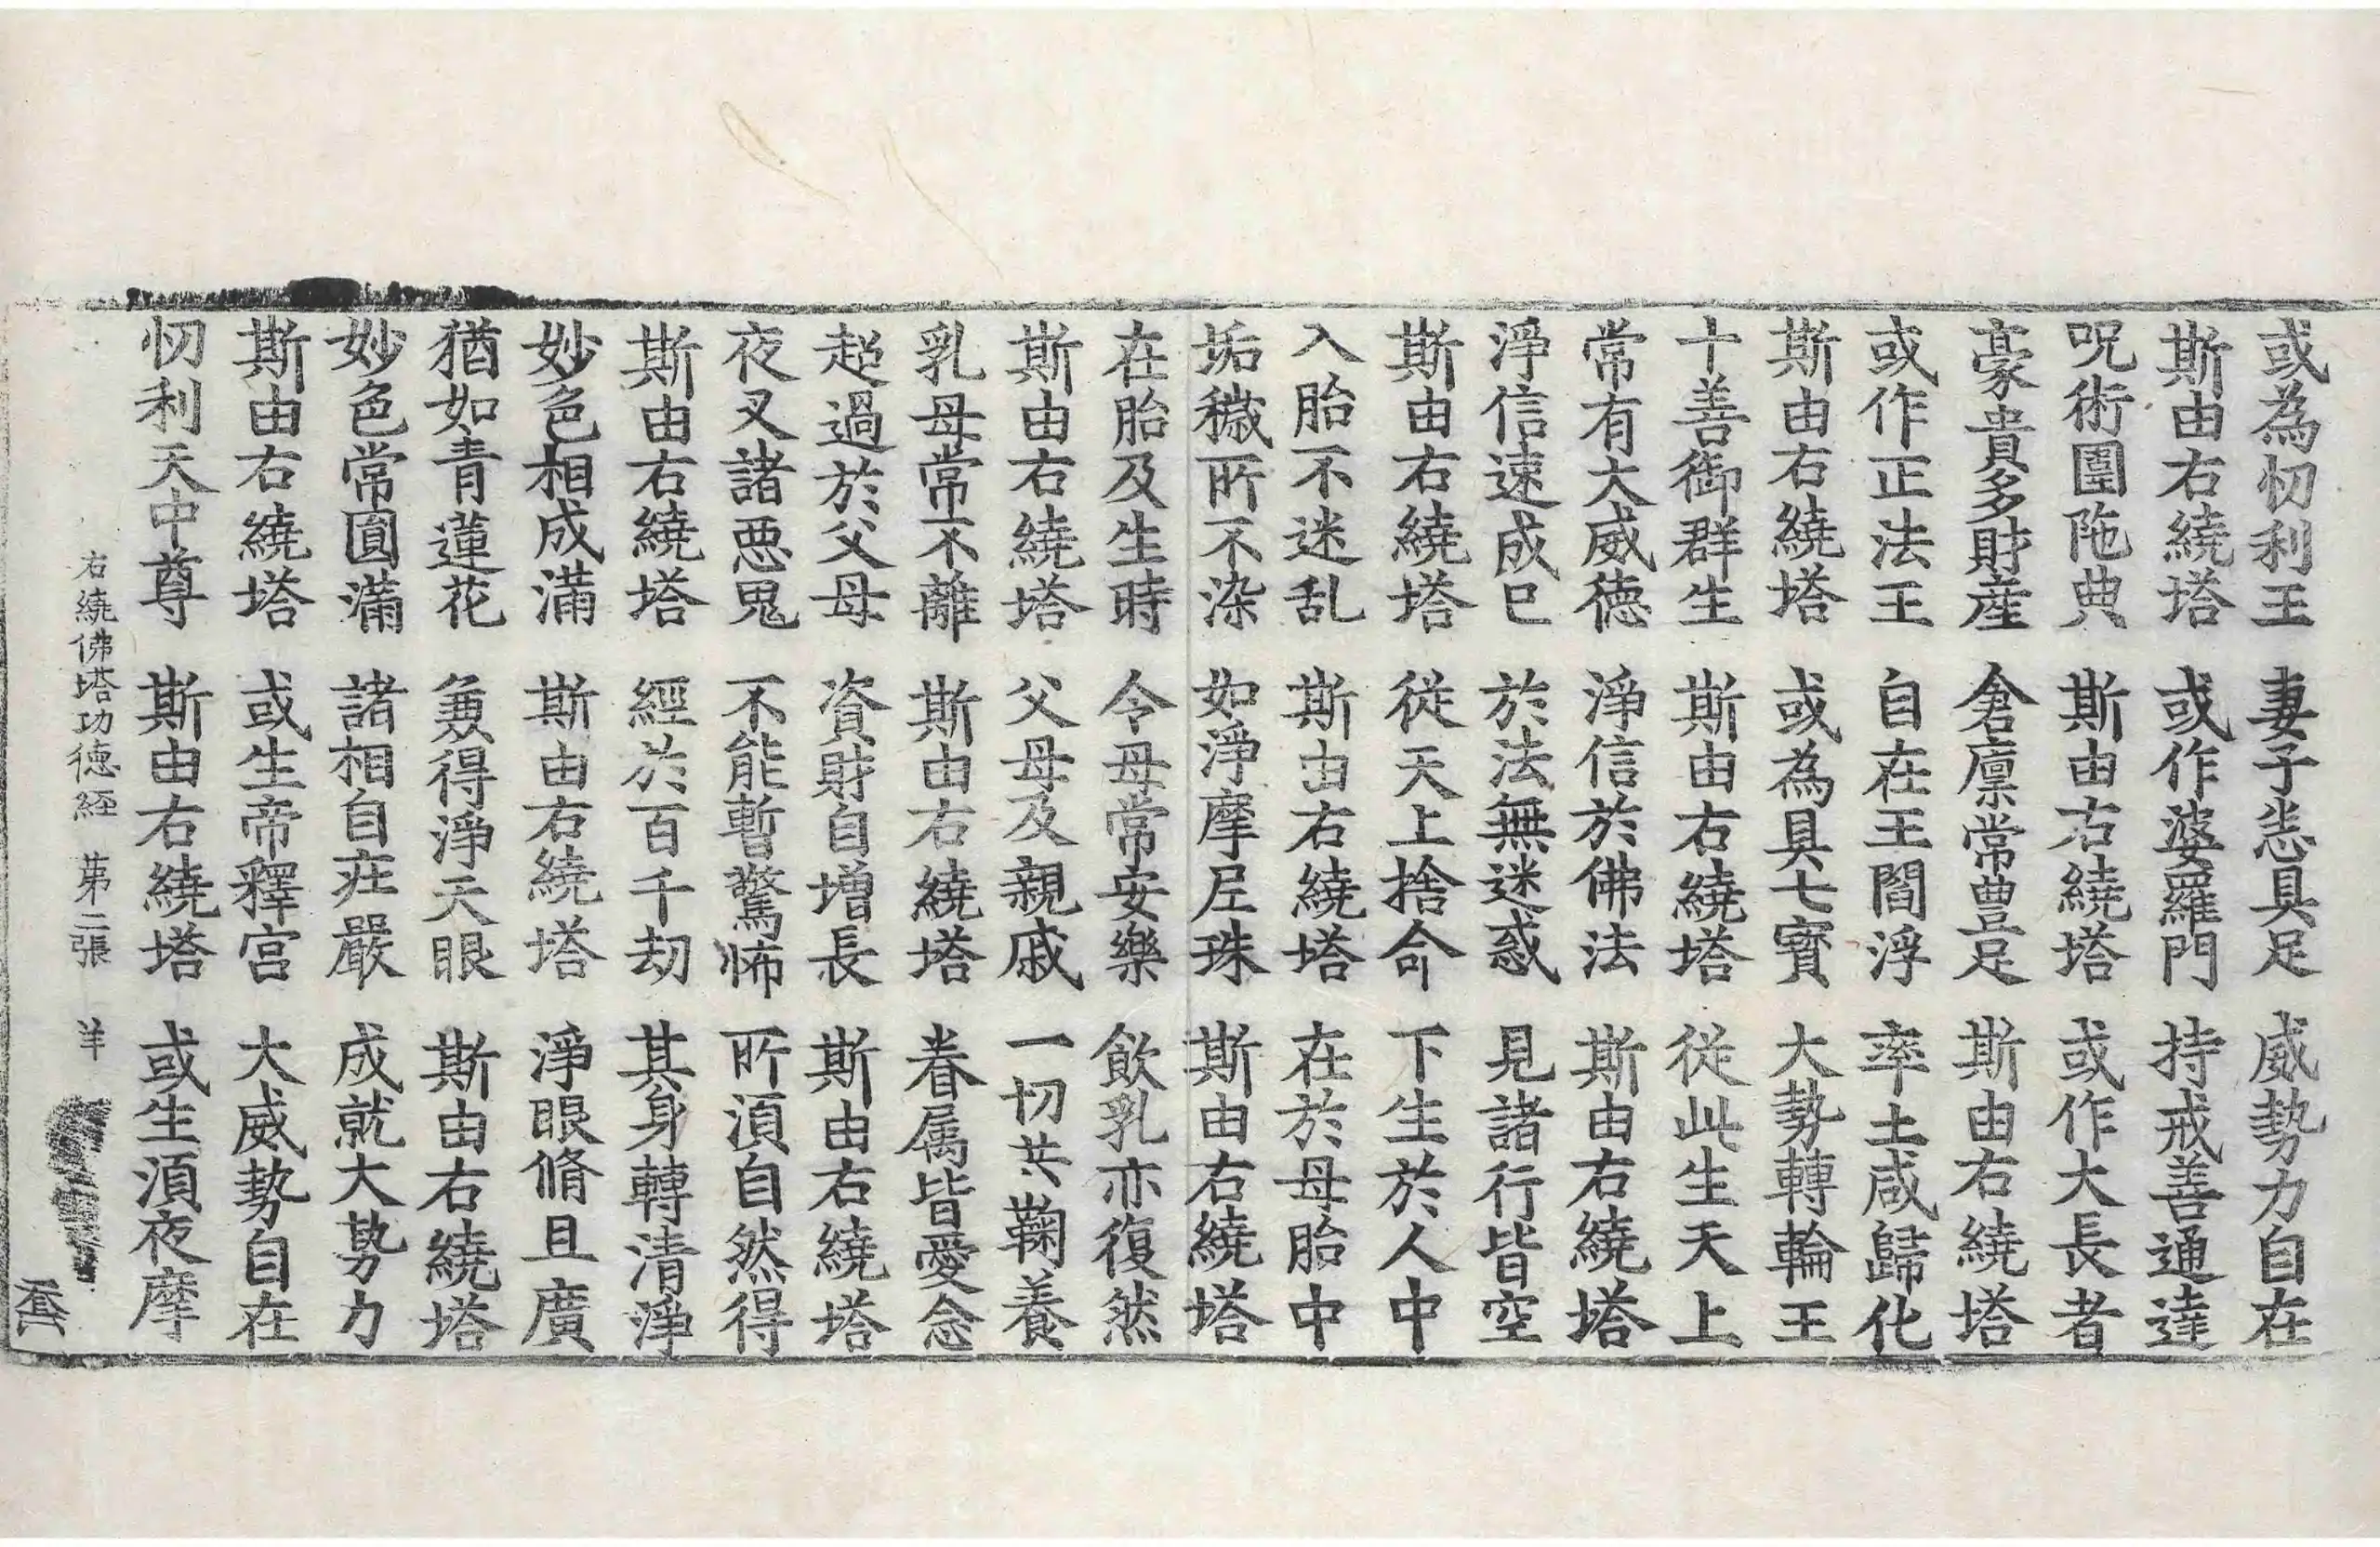 或為忉利王　妻子悉具足　威勢力自在
斯由右繞塔　或作婆羅門　持戒善通達
呪術圍陁典　斯由右繞塔　或作大長者
豪貴多財産　倉廩常豊足　斯由右繞塔
或作正法王　自在王閻浮　率土咸歸化
斯由右繞塔　或為具七寶　大勢轉輪王
十善御群生　斯由右繞塔　從此生天上
常有大威德　淨信於佛法　斯由右繞塔
淨信速成已　於法無迷惑　見諸行皆空
斯由右繞塔　從天上捨命　下生於人中
入胎不迷乱　斯由右繞塔　在於母胎中
垢穢所不染　如淨摩尼珠　斯由右繞塔
在胎及生時　令母常安樂　飲乳亦復然
斯由右繞塔　父母及親戚　一切共鞠養
乳母常不離　斯由右繞塔　眷属皆愛念
超過於父母　資財自增長　斯由右繞塔
夜叉諸惡鬼　不能暫驚怖　所湏自然得
斯由右繞塔　經於百千劫　其身轉清淨
妙色相成滿　斯由右繞塔　淨眼脩且廣
猶如青蓮花　兼得淨天眼　斯由右繞塔
妙色常圓滿　諸相自莊嚴　成就大勢力
斯由右繞塔　或生帝釋宫　大威勢自在
忉利天中尊　斯由右繞塔　或生湏夜摩
右繞佛塔功德經　第二張　羊